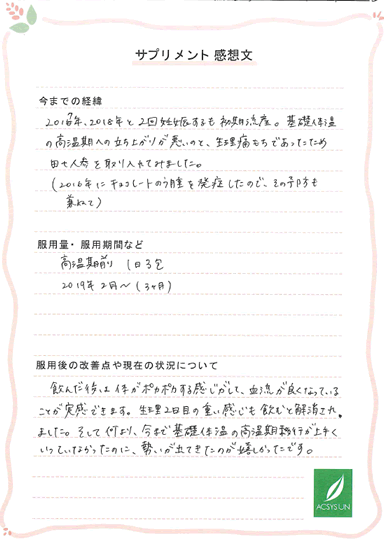 サプリメント 感想文
今までの経緯
2016年、2018年と2回妊娠するも初期流産。基礎体温
の高温期への立ち上がりが悪いのと、生理痛もちであったため
田七人参を取り入れてみました。
(2016年にチョコレートのう腫を発症したので、その予防も
兼ねて)
服用量・服用期間など
高温期前り 1日3包
2019年2月〜(3ヶ月)
服用後の改善点や現在の状況について
飲んだ後は体がポカポカする感じがして、血流が良くなっている
ことが実感できます。生理2日目の重い感じも飲むと解消され
ました。そして何より、今まで基礎体温の高温期移行が上手く
いっていなかったのに、勢いが出てきたのが嬉しかったです。
ACSYS UN